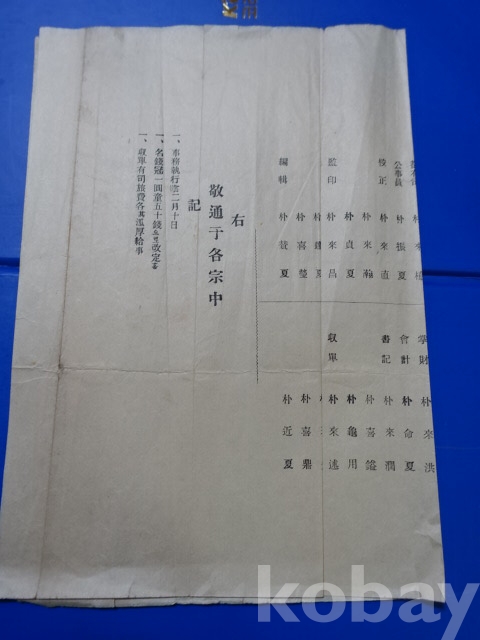 公事員 朴振夏
校正 朴來直
朴來瀚
朴貞夏
監印 朴來昌
朴 夏
朴喜瑩
編輯 朴 夏
掌財 朴來洪
會計 朴命夏
書記 朴來潤
朴喜鎰
朴龜用
收單 朴來述
朴喜鼎
朴近夏
右
敬通于各宗中
記
一、事務執行陰二月十日
一、名錢冠一圓童五十錢으로改定홈
一、收單有司旅費各其派厚給事
kobay